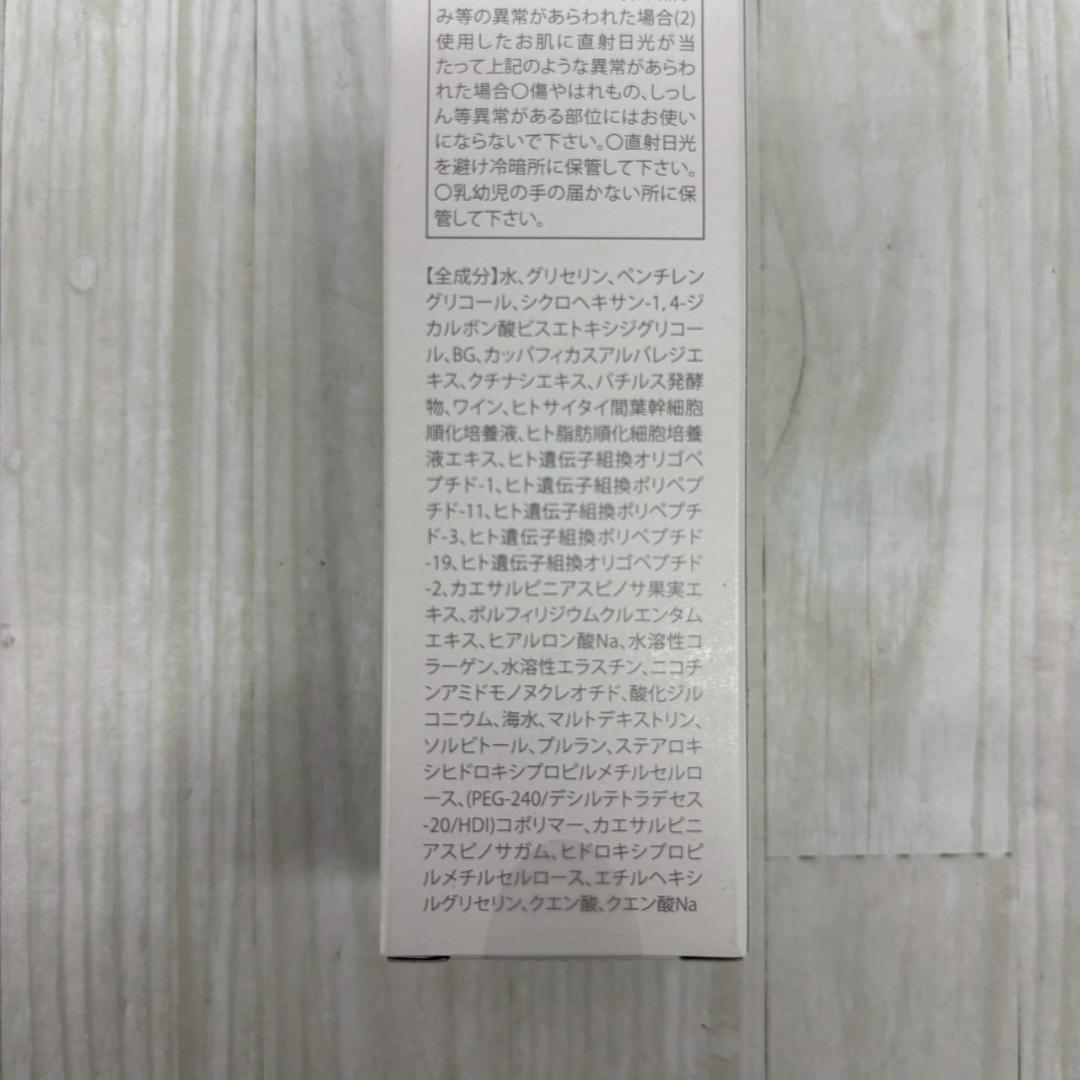 み等の異常があらわれた場合(2)
使用したお肌に直射日光が当
たって上記のような異常があらわ
れた場合〇傷やはれもの、しっし
ん等異常がある部位にはお使い
にならないで下さい。〇直射日光
を避け冷暗所に保管して下さい。
〇乳幼児の手の届かない所に保
管して下さい。
【全成分】水、グリセリン、ペンチレン
グリコール、シクロヘキサン-1, 4-ジ
カルボン酸ビスエトキシジグリコー
ル、BG、カッパフィカスアルバレジエ
キス、クチナシエキス、バチルス発酵
物、ワイン、ヒトサイタイ間葉幹細胞
順化培養液、ヒト脂肪順化細胞培養
液エキス、ヒト遺伝子組換オリゴペ
プチド-1、ヒト遺伝子組換ポリペプ
チド-11、ヒト遺伝子組換ポリペプチ
ド-3、ヒト遺伝子組換ポリペプチド
-19、ヒト遺伝子組換オリゴペプチド
-2、カエサルピニアスピノサ果実エ
キス、ポルフィリジウムクルエンタム
エキス、ヒアルロン酸Na、水溶性コ
ラーゲン、水溶性エラスチン、ニコチ
ンアミドモノヌクレオチド、酸化ジル
コニウム、海水、マルトデキストリン、
ソルビトール、プルラン、ステアロキ
シヒドロキシプロピルメチルセルロ
ース、(PEG-240/デシルテトラデセス
-20/HDI)コポリマー、カエサルピニ
アスピノサガム、ヒドロキシプロピ
ルメチルセルロース、エチルヘキシ
ルグリセリン、クエン酸、クエン酸Na